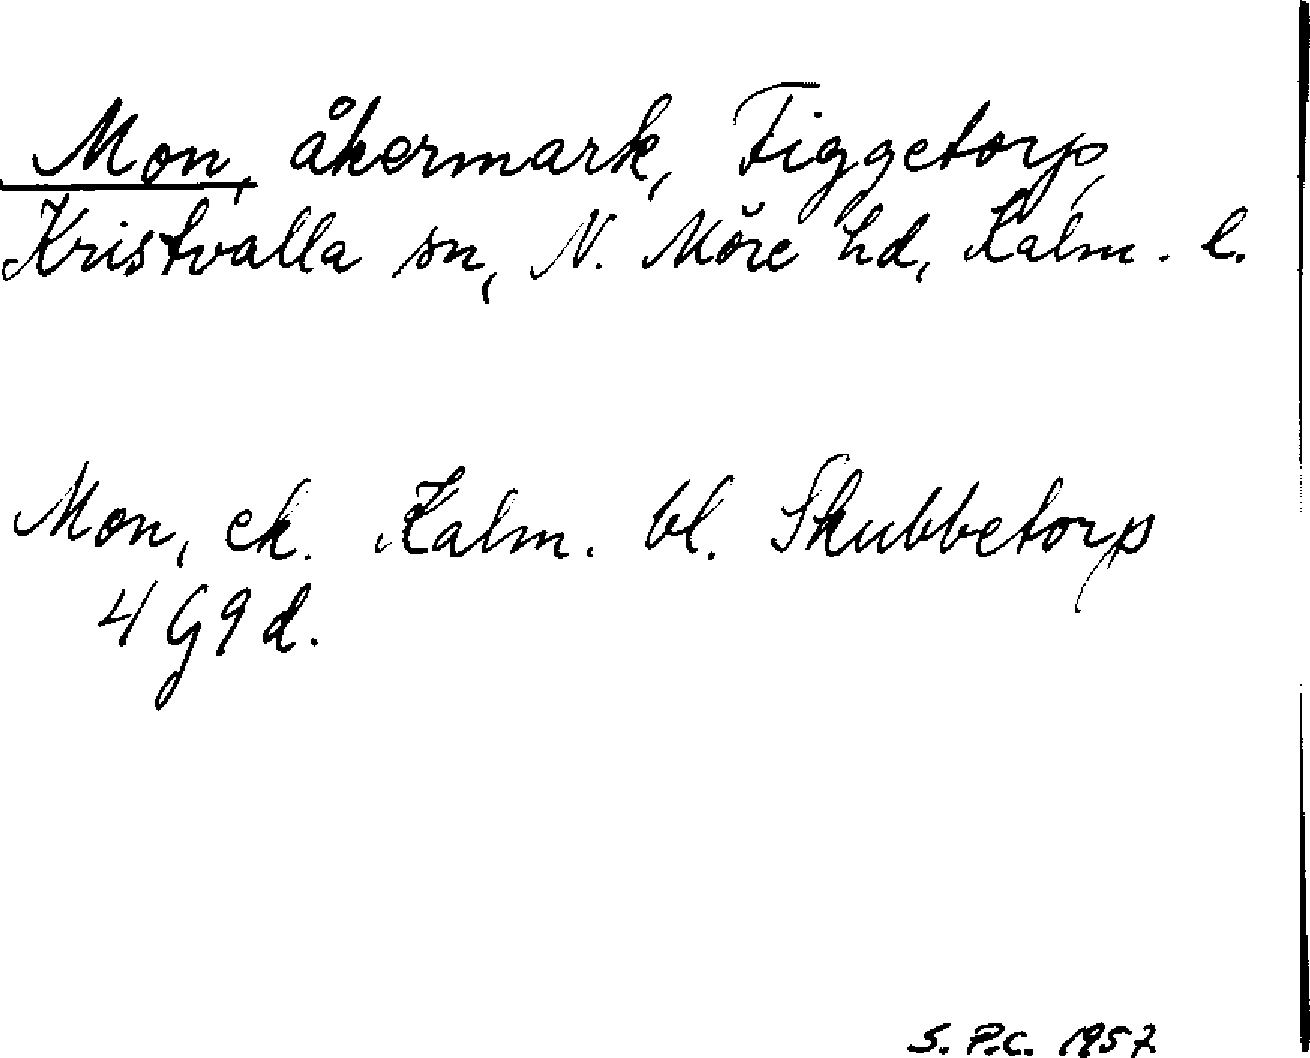 Mon, åkermark, Figgetorp,
Kristvalla sn, N. Möre hd, Kalm. l.
Mon, ek. Kalm. bl. Skubbetorp
4 G 9 d.
S. P.C. 1957